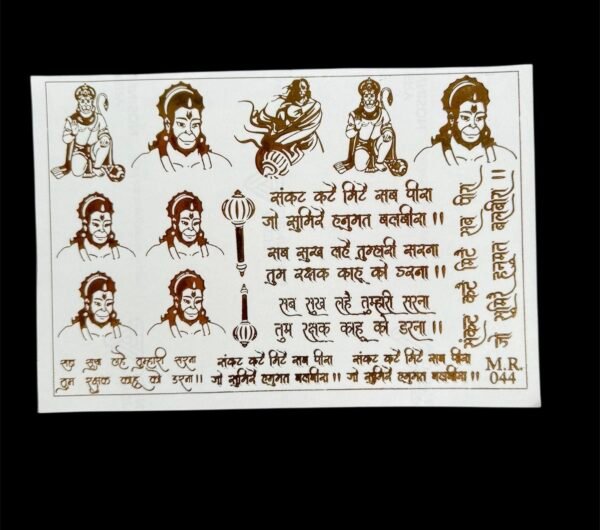 संकट कटै मिटै सब पीरा
जो सुमिरै हनुमत बलबीरा ।।
सब सुख लहै तुम्हारी सरना
तुम रक्षक काहू को डरना ।।
सब सुख लहै तुम्हारी सरना
तुम रक्षक काहू को डरना ।।
संकट कटै मिटै सब पीरा
जो सुमिरै हनुमत बलबीरा ।।
सब सुख लहै तुम्हारी सरना
तुम रक्षक काहू को डरना ।।
संकट कटै मिटै सब पीरा
जो सुमिरै हनुमत बलबीरा ।।
संकट कटै मिटै सब पीरा
जो सुमिरै हनुमत बलबीरा ।।
M.R.
044